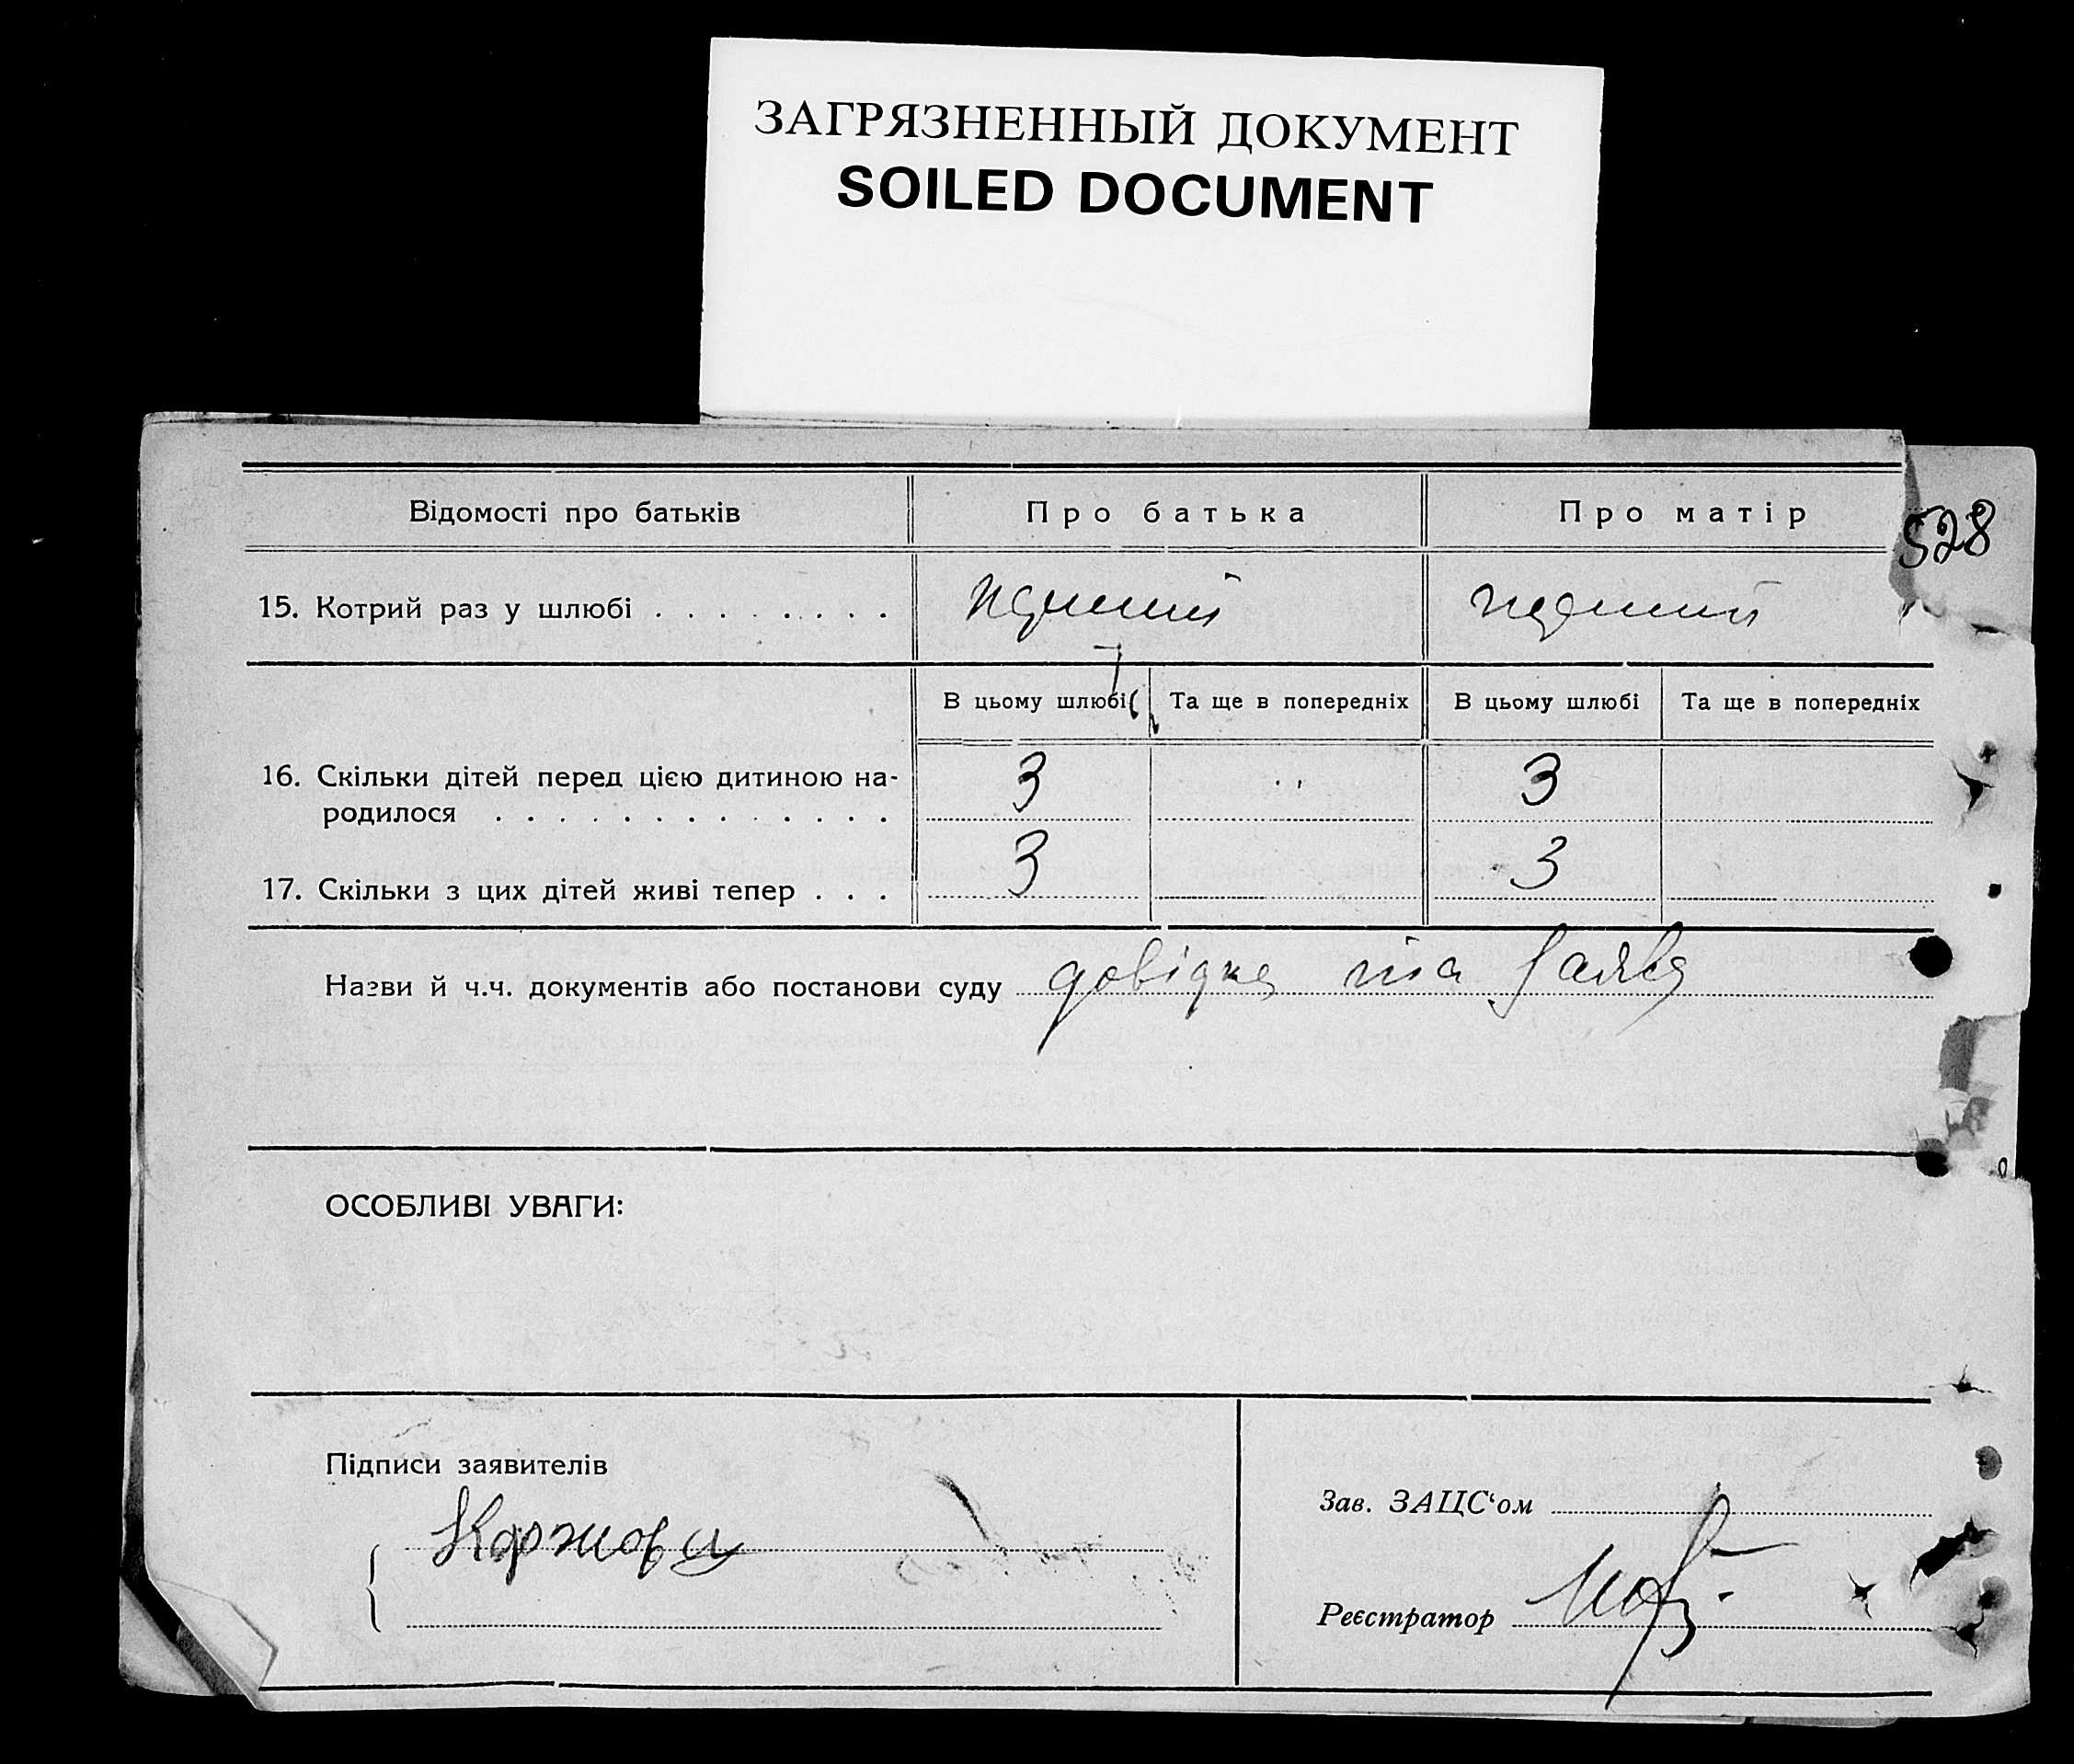 ЗАГРЯЗНЕННЫЙ ДОКУМЕНТ
SOILED DOCUMENT
528
Відомості про батьків Про батька Про матір
15. Котрий раз у шлюбі . . . . . . . .
В цьому шлюбі Та ще в попередніх В цьому шлюбі Та ще в попередніх
16. Скільки дітей перед цією дитиною на-
родилося . . . . . . . . . . . . . 3 3
17. Скільки з цих дітей живі тепер . . . 3 3
Назви й ч.ч. документів або постанови суду довідка та заява
ОСОБЛИВІ УВАГИ:
Підписи заявителів
Зав. ЗАЦС‘ом
Коржова
Реєстратор